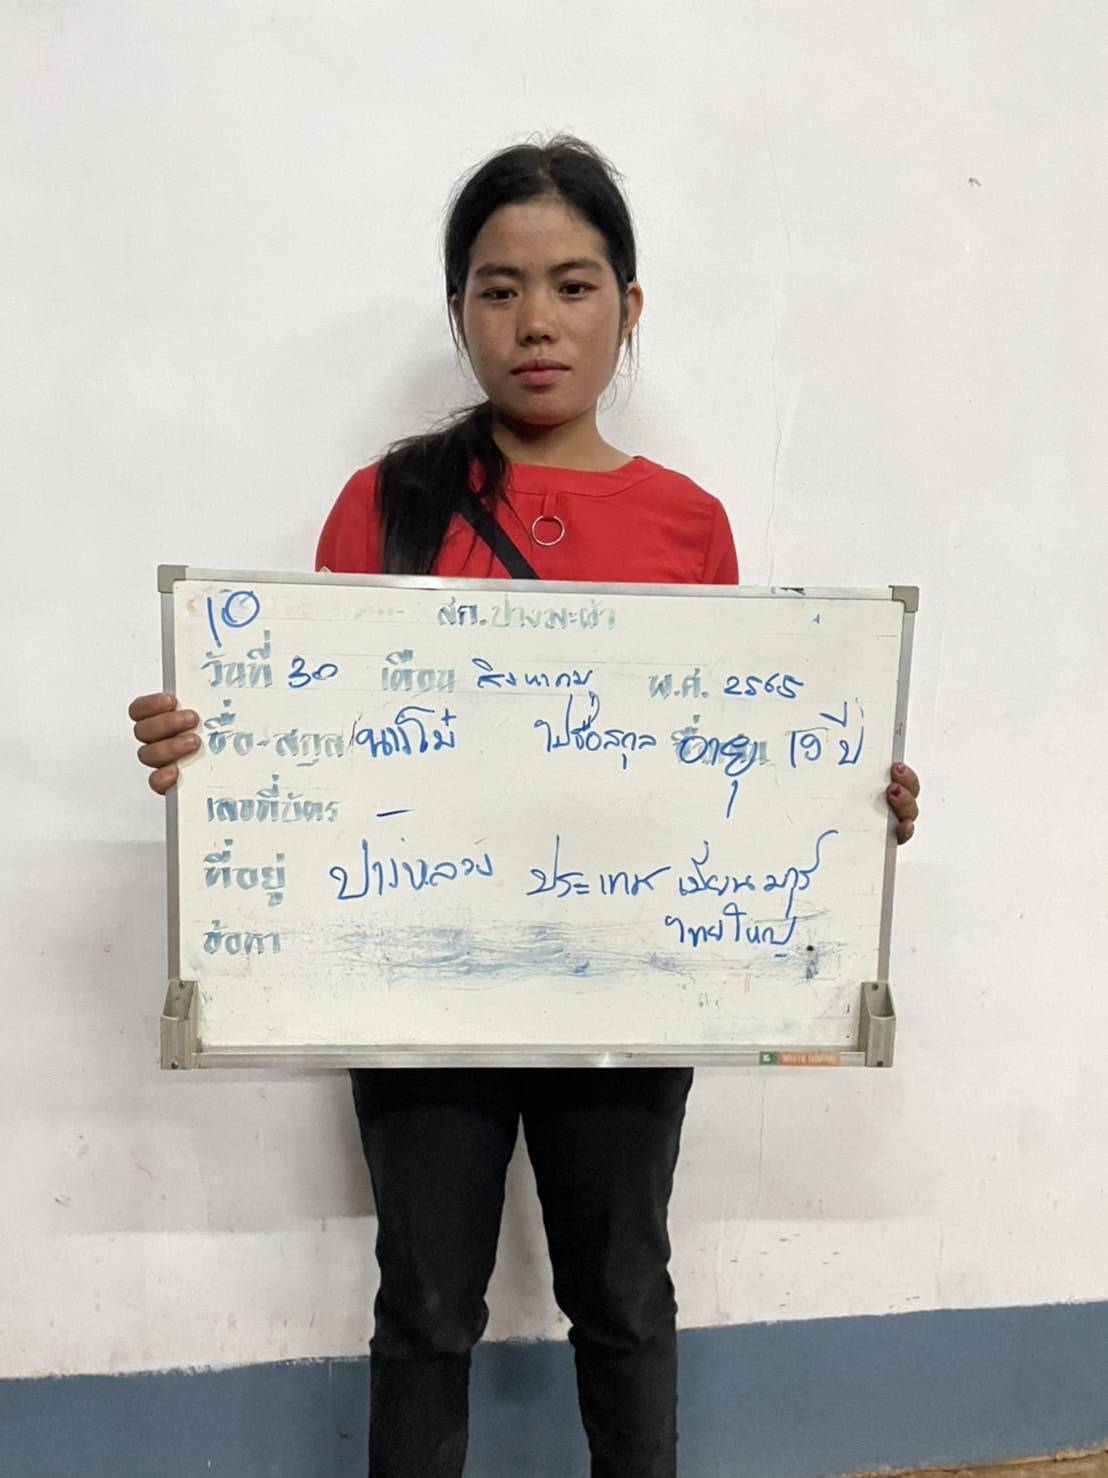 10 สภ.ปางมะผ้า
วันที่ 30 เดือน สิงหาคม พ.ศ. 2565
ชื่อ-สกุล นางโม๋ ไม่มีชื่อสกุล อายุ 19 ปี
เลขที่บัตร -
ที่อยู่ ปางหลวง ประเทศ เมียนมาร์
ไทยใหญ่
ข้อหา
WHITE BOARD